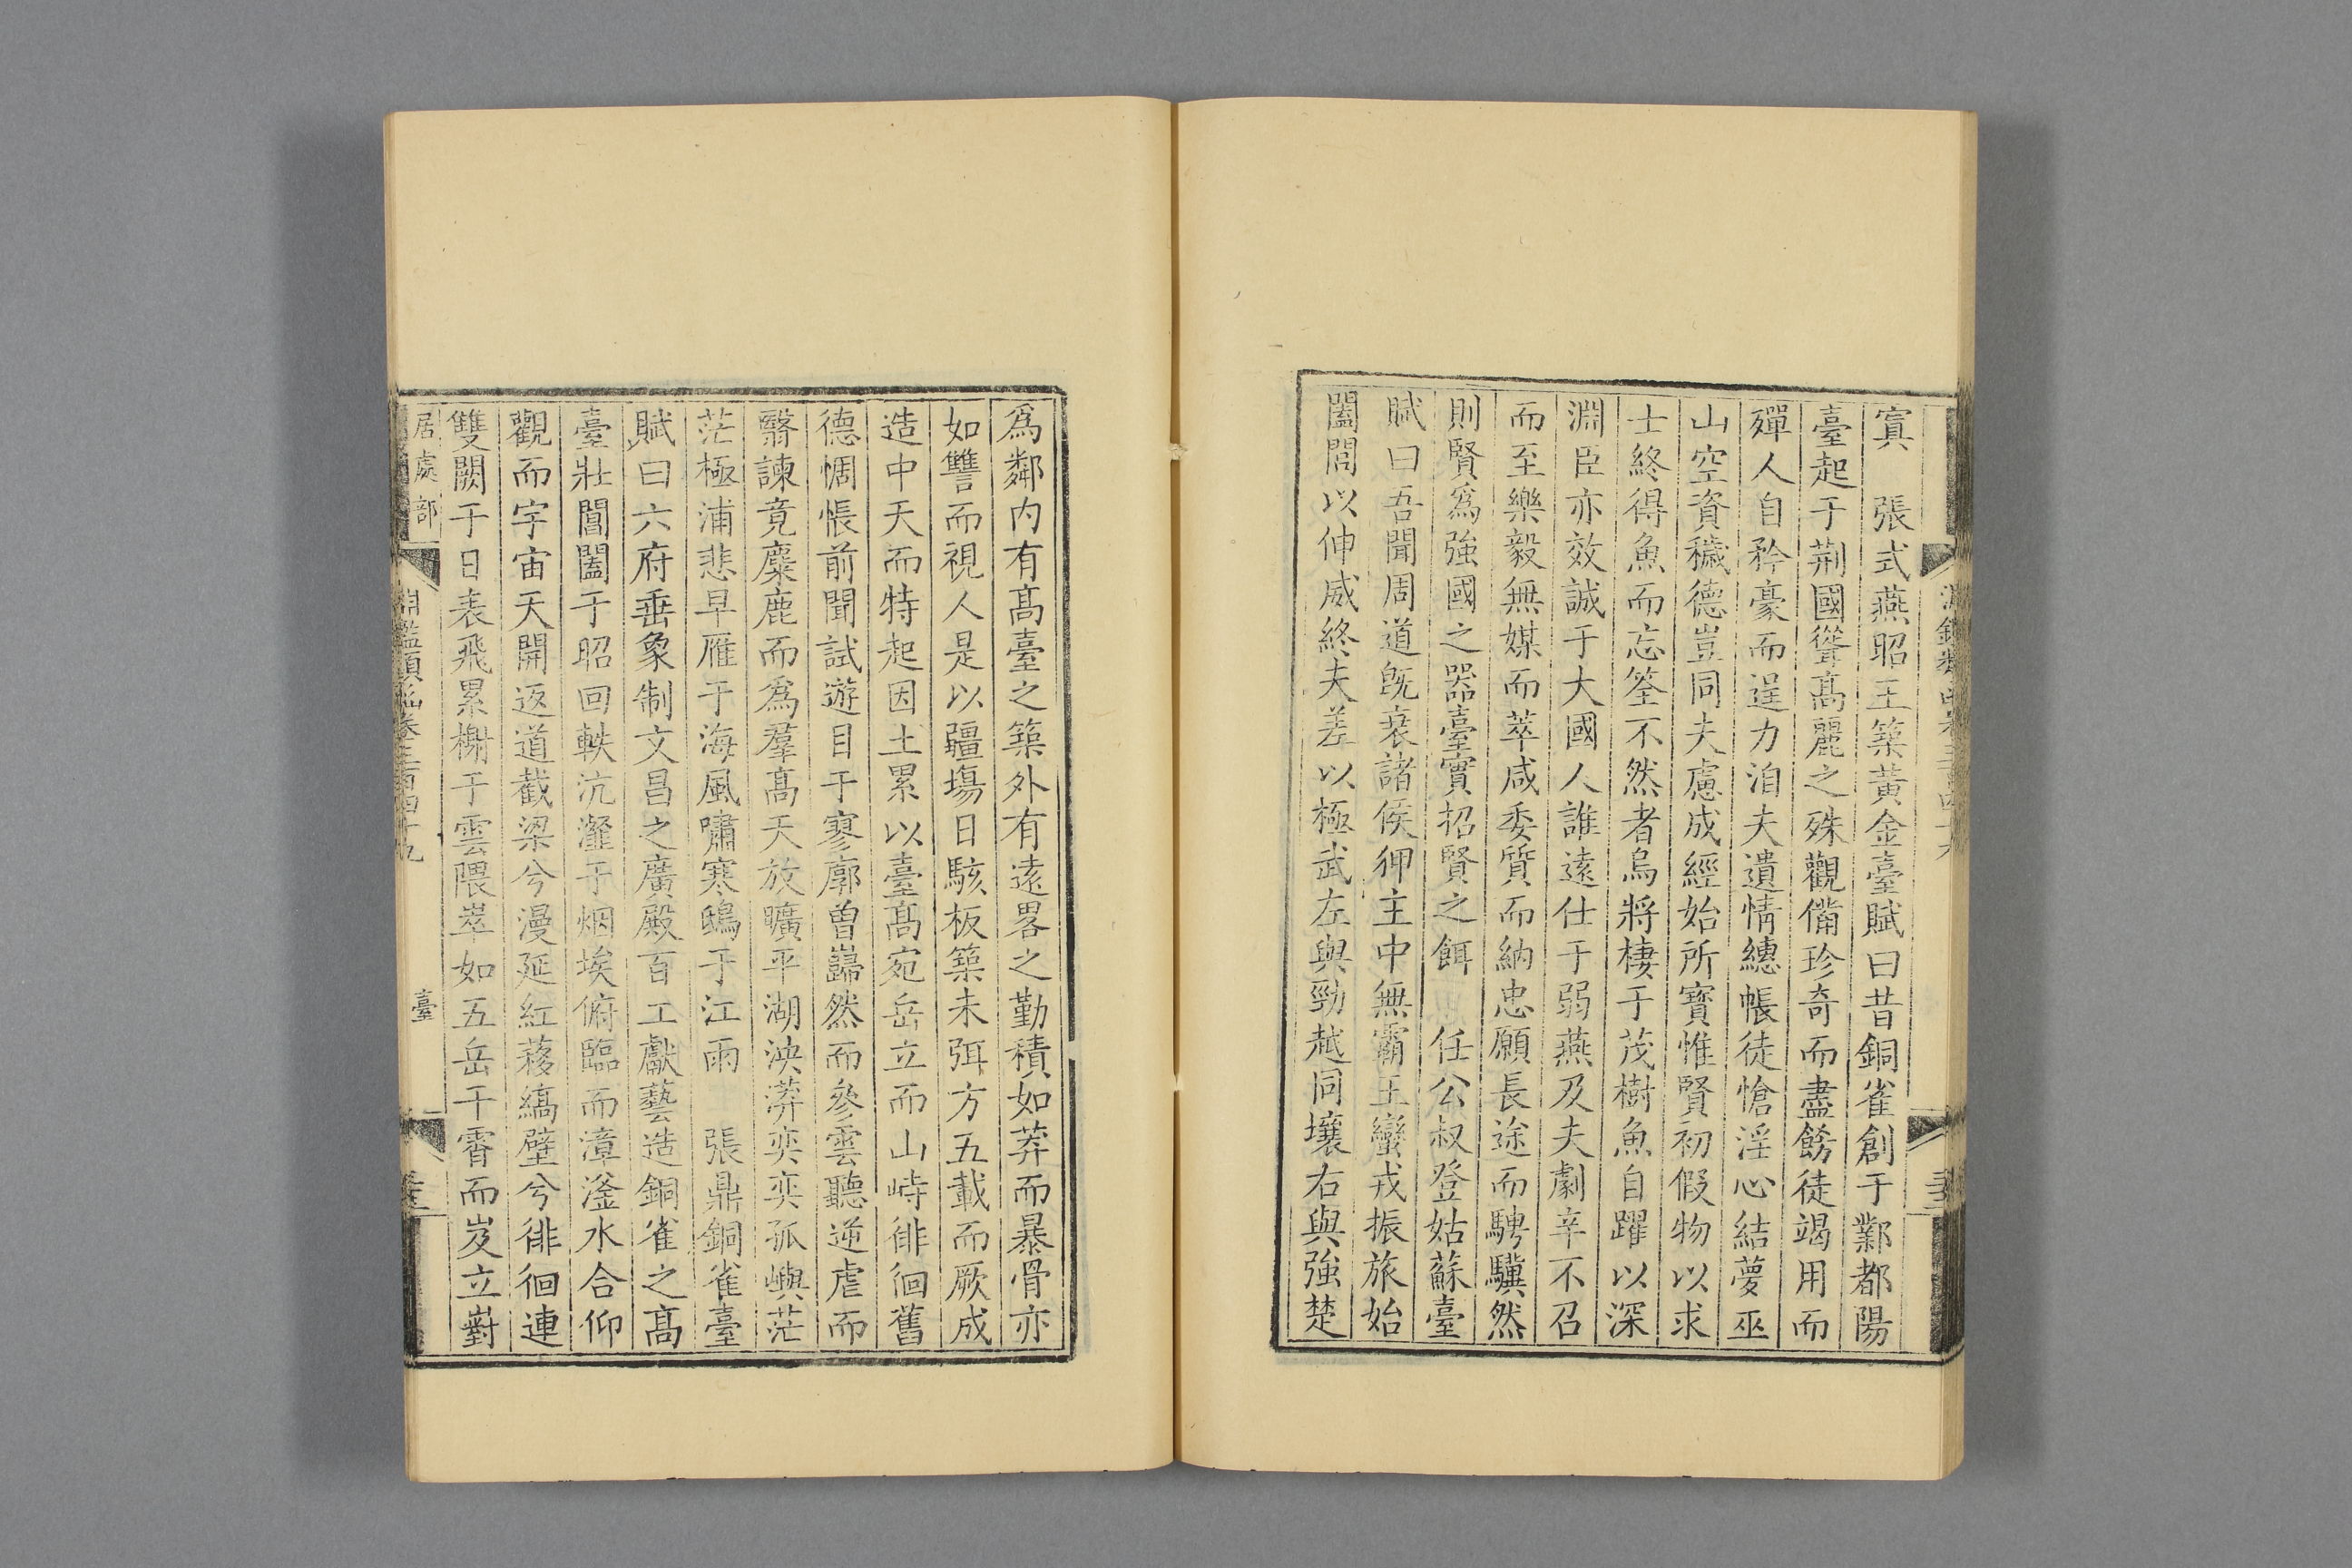 寘　張式燕昭王築黃金臺賦曰昔銅雀創于鄴都陽
臺起于荆國聳高麗之殊觀備珍奇而盡餝徒竭用而
殫人自矜豪而逞力洎夫遺情繐帳徒愴淫心結夢巫
山空資穢德豈同夫慮成經始所寶惟賢初假物以求
士終得魚而忘筌不然者烏將棲于茂樹魚自躍以深
淵臣亦效誠于大國人誰遠仕于弱燕及夫劇辛不召
而至樂毅無媒而萃咸委質而納忠願長途而騁驥然
則賢爲強國之器臺實招賢之餌　任公叔登姑蘇臺
賦曰吾聞周道旣衰諸侯狎主中無霸王蠻戎振旅始
闔閭以伸威終夫差以極武左與勁越同壤右與強楚
爲鄰内有高臺之築外有遠畧之勤積如莽而暴骨亦
如讐而視人是以疆場日駭板築未弭方五載而厥成
造中天而特起因土累以臺高宛岳立而山峙徘徊舊
德惆悵前聞試遊目于寥廓曾巋然而參雲聽逆虐而
翳諫竟麋鹿而爲羣高天放曠平湖泱漭奕奕孤嶼茫
茫極浦悲早雁于海風嘯寒鴟于江雨　張鼎銅雀臺
賦曰六府垂象制文昌之廣殿百工獻藝造銅雀之高
臺壯閶闔于昭回軼沆瀣于烟埃俯臨而漳滏水合仰
觀而宇宙天開返道截梁兮漫延紅蕟縞壁兮徘徊連
雙闕于日表飛累榭于雲隈崒如五岳干霄而岌立對
居處部
淵鑑類函卷三百四十九
臺